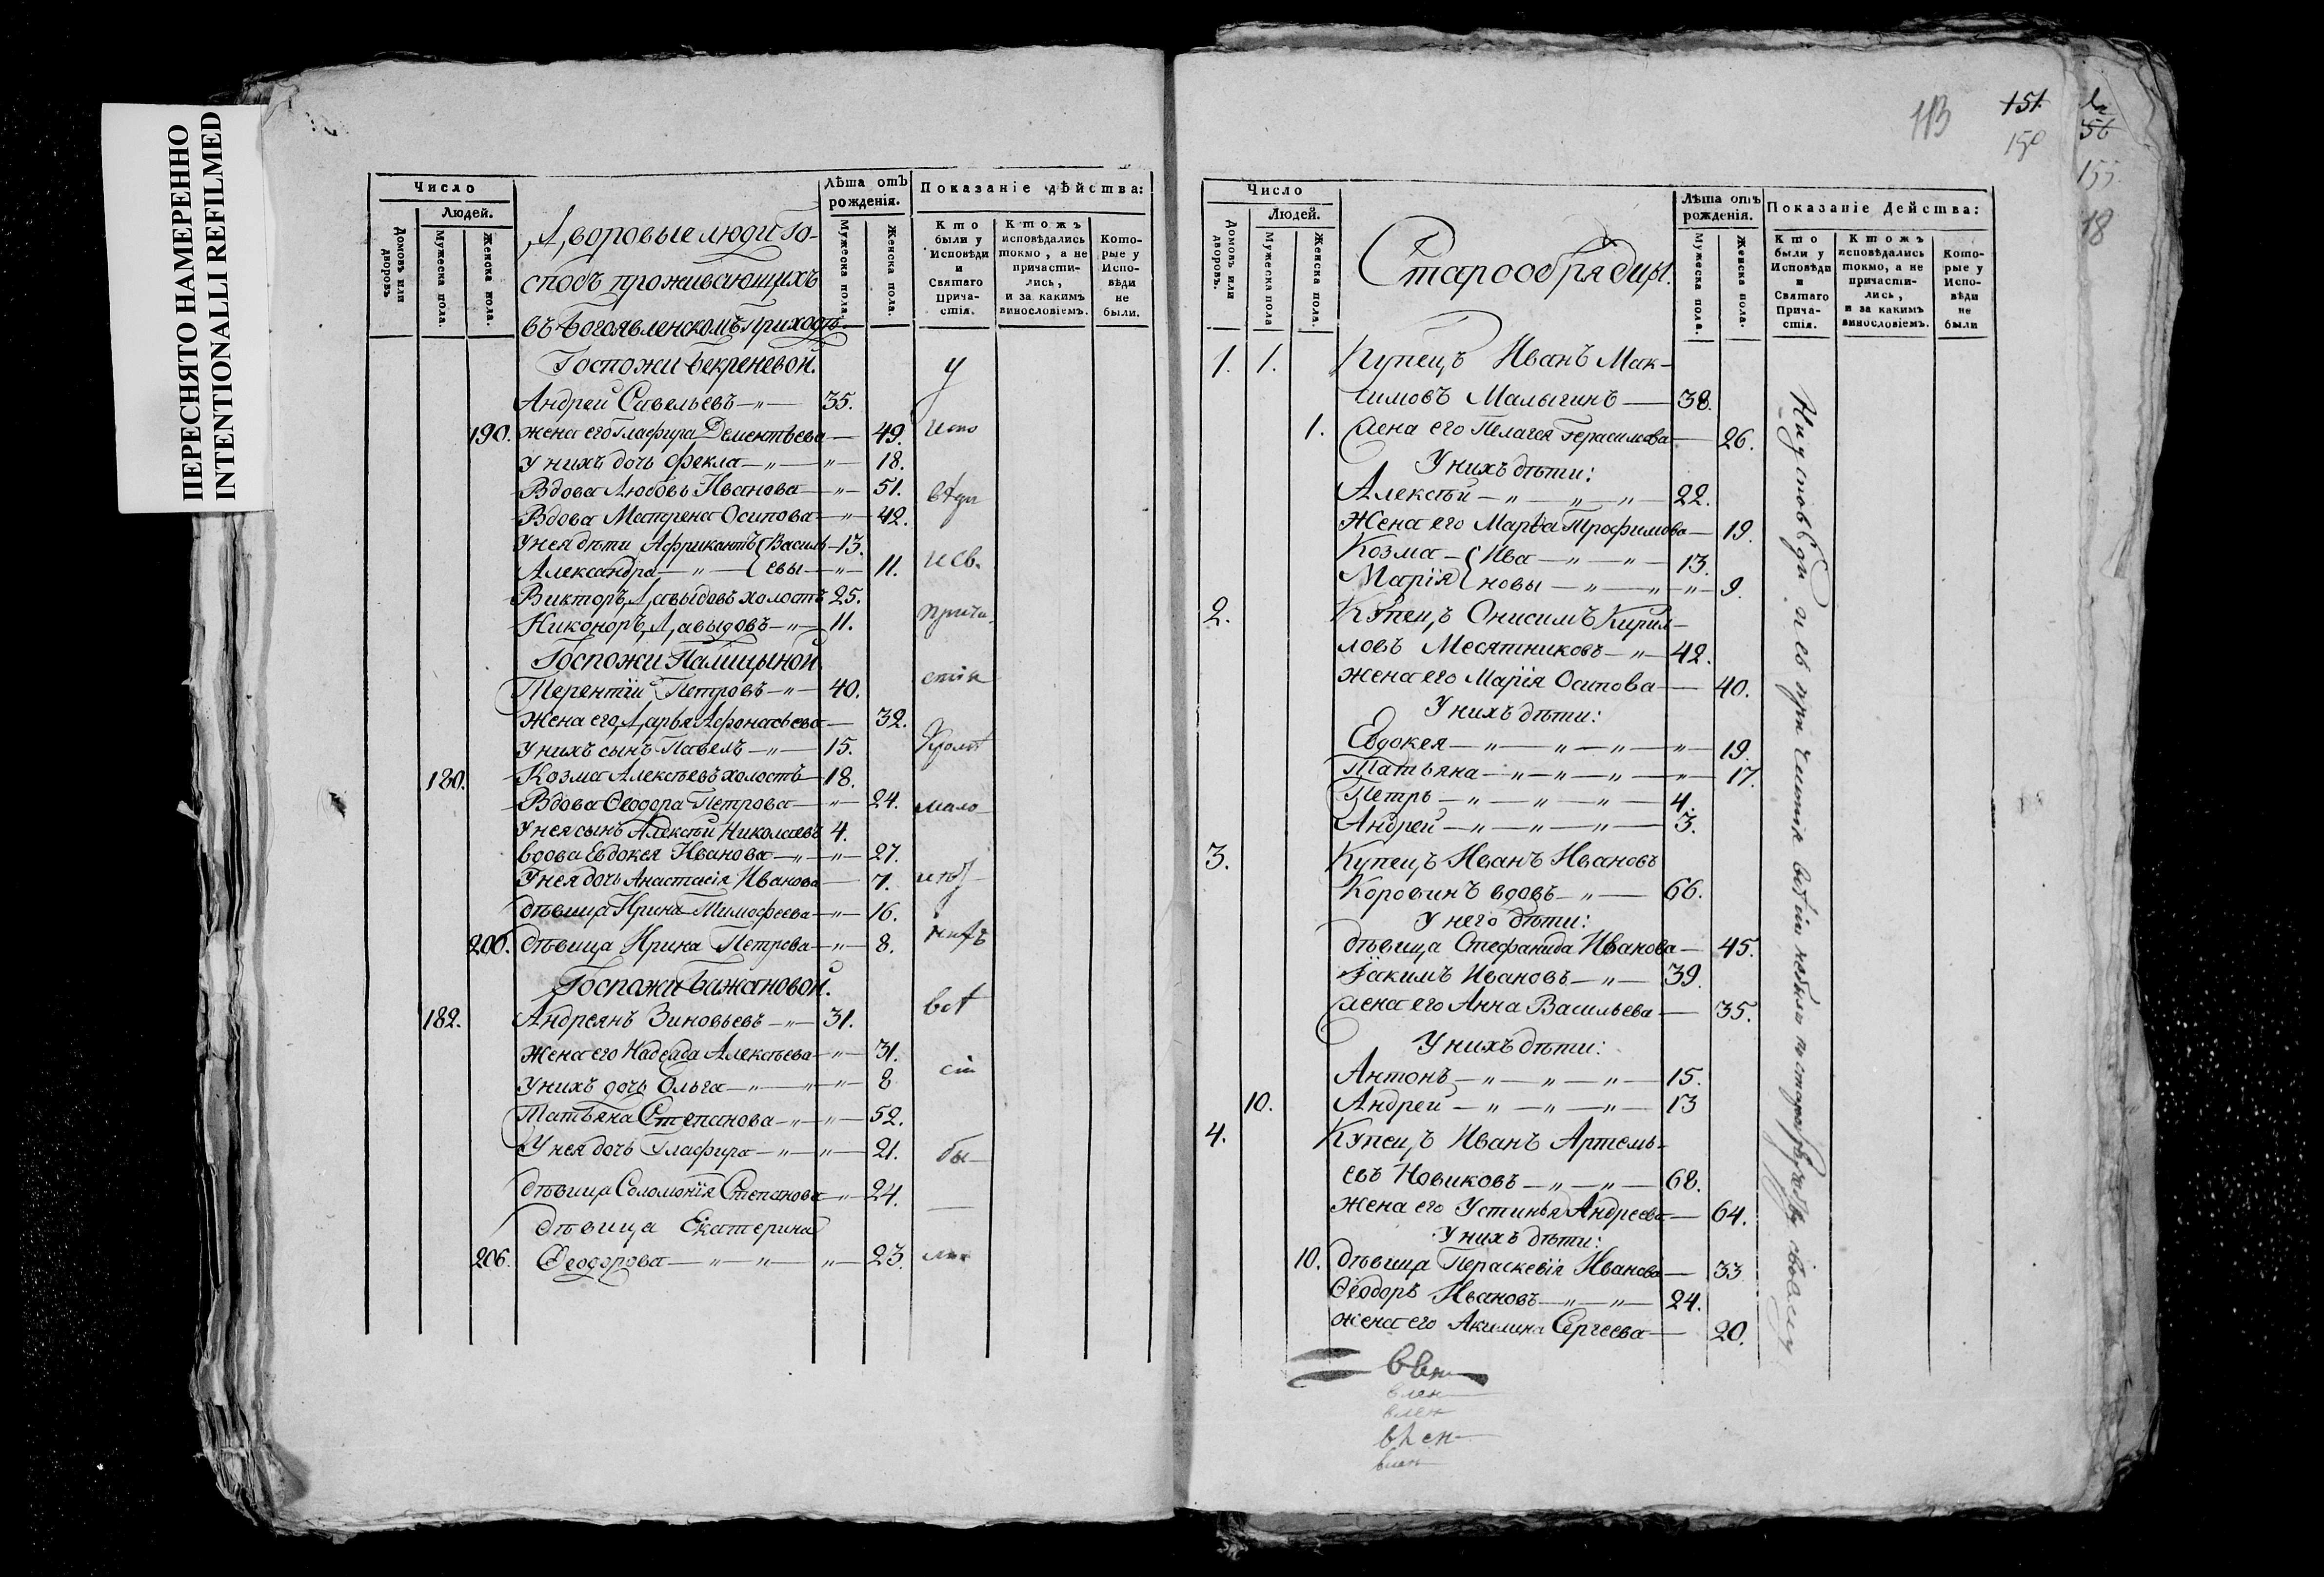 ПЕРЕСНЯТО НАМЕРЕННО
INTENTIONALLI REFILMED
Число
Людей.
Домовъ или дворовъ
Мужеска пола.
Женска пола.
Дворовые люди Го-
сподъ проживающихъ
въ Богоявленскомъ приходѣ.
Лѣта отъ рожденія.
Мужеска пола.
Женска пола.
Показаніе дѣйства:
Кто были у Исповѣди и Святаго Прича-стія.
Ктожъ исповѣдались токмо, а не причасти-лись, и за какимъ винословіемъ.
Кото-рые у Испо-вѣди не были.
Госпожи Бекреневой.
Андрей Савельевъ — 35.
190. жена его Глафира Дементьева — 49.
У нихъ дочь Фекла — " — 18.
Вдова Любовь Иванова — " — 51.
Вдова Матрена Осипова — " — 42.
У нея дѣти Африкантъ { Василь- 13.
Александра — " — { евы — " — 11.
Викторъ Давыдовъ холостъ 25.
Никоноръ Давыдовъ — " — 11.
Госпожи Палицыной
Терентій Петровъ — " — 40.
жена его Дарья Афонасьева — 32.
У нихъ сынъ Павелъ — " — 15.
180. Козма Алексѣевъ холостъ — 18.
Вдова Ѳеодора Петрова — " — 24.
У нея сынъ Алексѣй Николаевъ 4.
вдова Евдокея Иванова — " — 27.
У нея дочь Анастасія Иванова — 7.
дѣвица Ирина Тимофеева — " — 16.
200. дѣвица Ирина Петрова — " — 8.
Госпожи Бажановой.
182. Андреянъ Зиновьевъ — " — 31.
Жена его Надежда Алексѣева — " — 31.
У нихъ дочь Ольга — " — 8
Татьяна Степанова — " — 52.
У нея дочь Глафира — " — 21.
дѣвица Соломонія Степанова — " — 24.
дѣвица Екатерина
206. Ѳеодорова — " — " — 23.
У
испо
вѣди
и св.
прича-
стія
Кромѣ
мало
всѣ
бы-
ли
113
151
150
56
155
18
Число
Людей.
Домовъ или дворовъ.
Мужеска пола
Женска пола.
Старообрядцы.
Лѣта отъ рожденія.
Мужеска пола.
Женска пола.
Показаніе Действа:
Кто были у Исповѣди и Святаго Прича-стія.
Ктожъ исповѣдались токмо, а не причасти-лись, и за какимъ винословіемъ.
Кото-рые у Испо-вѣди не были
1. 1. Купецъ Иванъ Мак-
симовъ Малыгинъ — 38.
1. Жена его Пелагея Герасимова — 26.
У нихъ дѣти:
Алексѣй — " — " — " — 22.
Жена его Марѳа Трофимова — 19.
Козма — { Ива — " — " — 13.
Марія { новы — " — " — " — 9.
2. Купецъ Онисимъ Кирил-
ловъ Месятниковъ — " — 42.
жена его Марія Осипова — 40.
У нихъ дѣти:
Евдокея — " — " — " — " — 19.
Татьяна — " — " — " — " — 17.
Петръ — " — " — " — 4.
Андрей — " — " — " — 3.
3. Купецъ Иванъ Ивановъ
Коровинъ вдовъ — " — 66.
У него дѣти:
дѣвица Стефанида Иванова — 45.
Іакимъ Ивановъ — " — 39.
Жена его Анна Васильева — 35.
У нихъ дѣти:
Антонъ — " — " — " — 15.
10. Андрей — " — " — " — 13
4. Купецъ Иванъ Артемь-
евъ Новиковъ — " — " — 68.
жена его Устинья Андреева — 64.
У нихъ дѣти:
10. дѣвица Параскевія Иванова — 33
Ѳеодоръ Ивановъ — " — " — 24.
жена его Акилина Сергеева — 20.